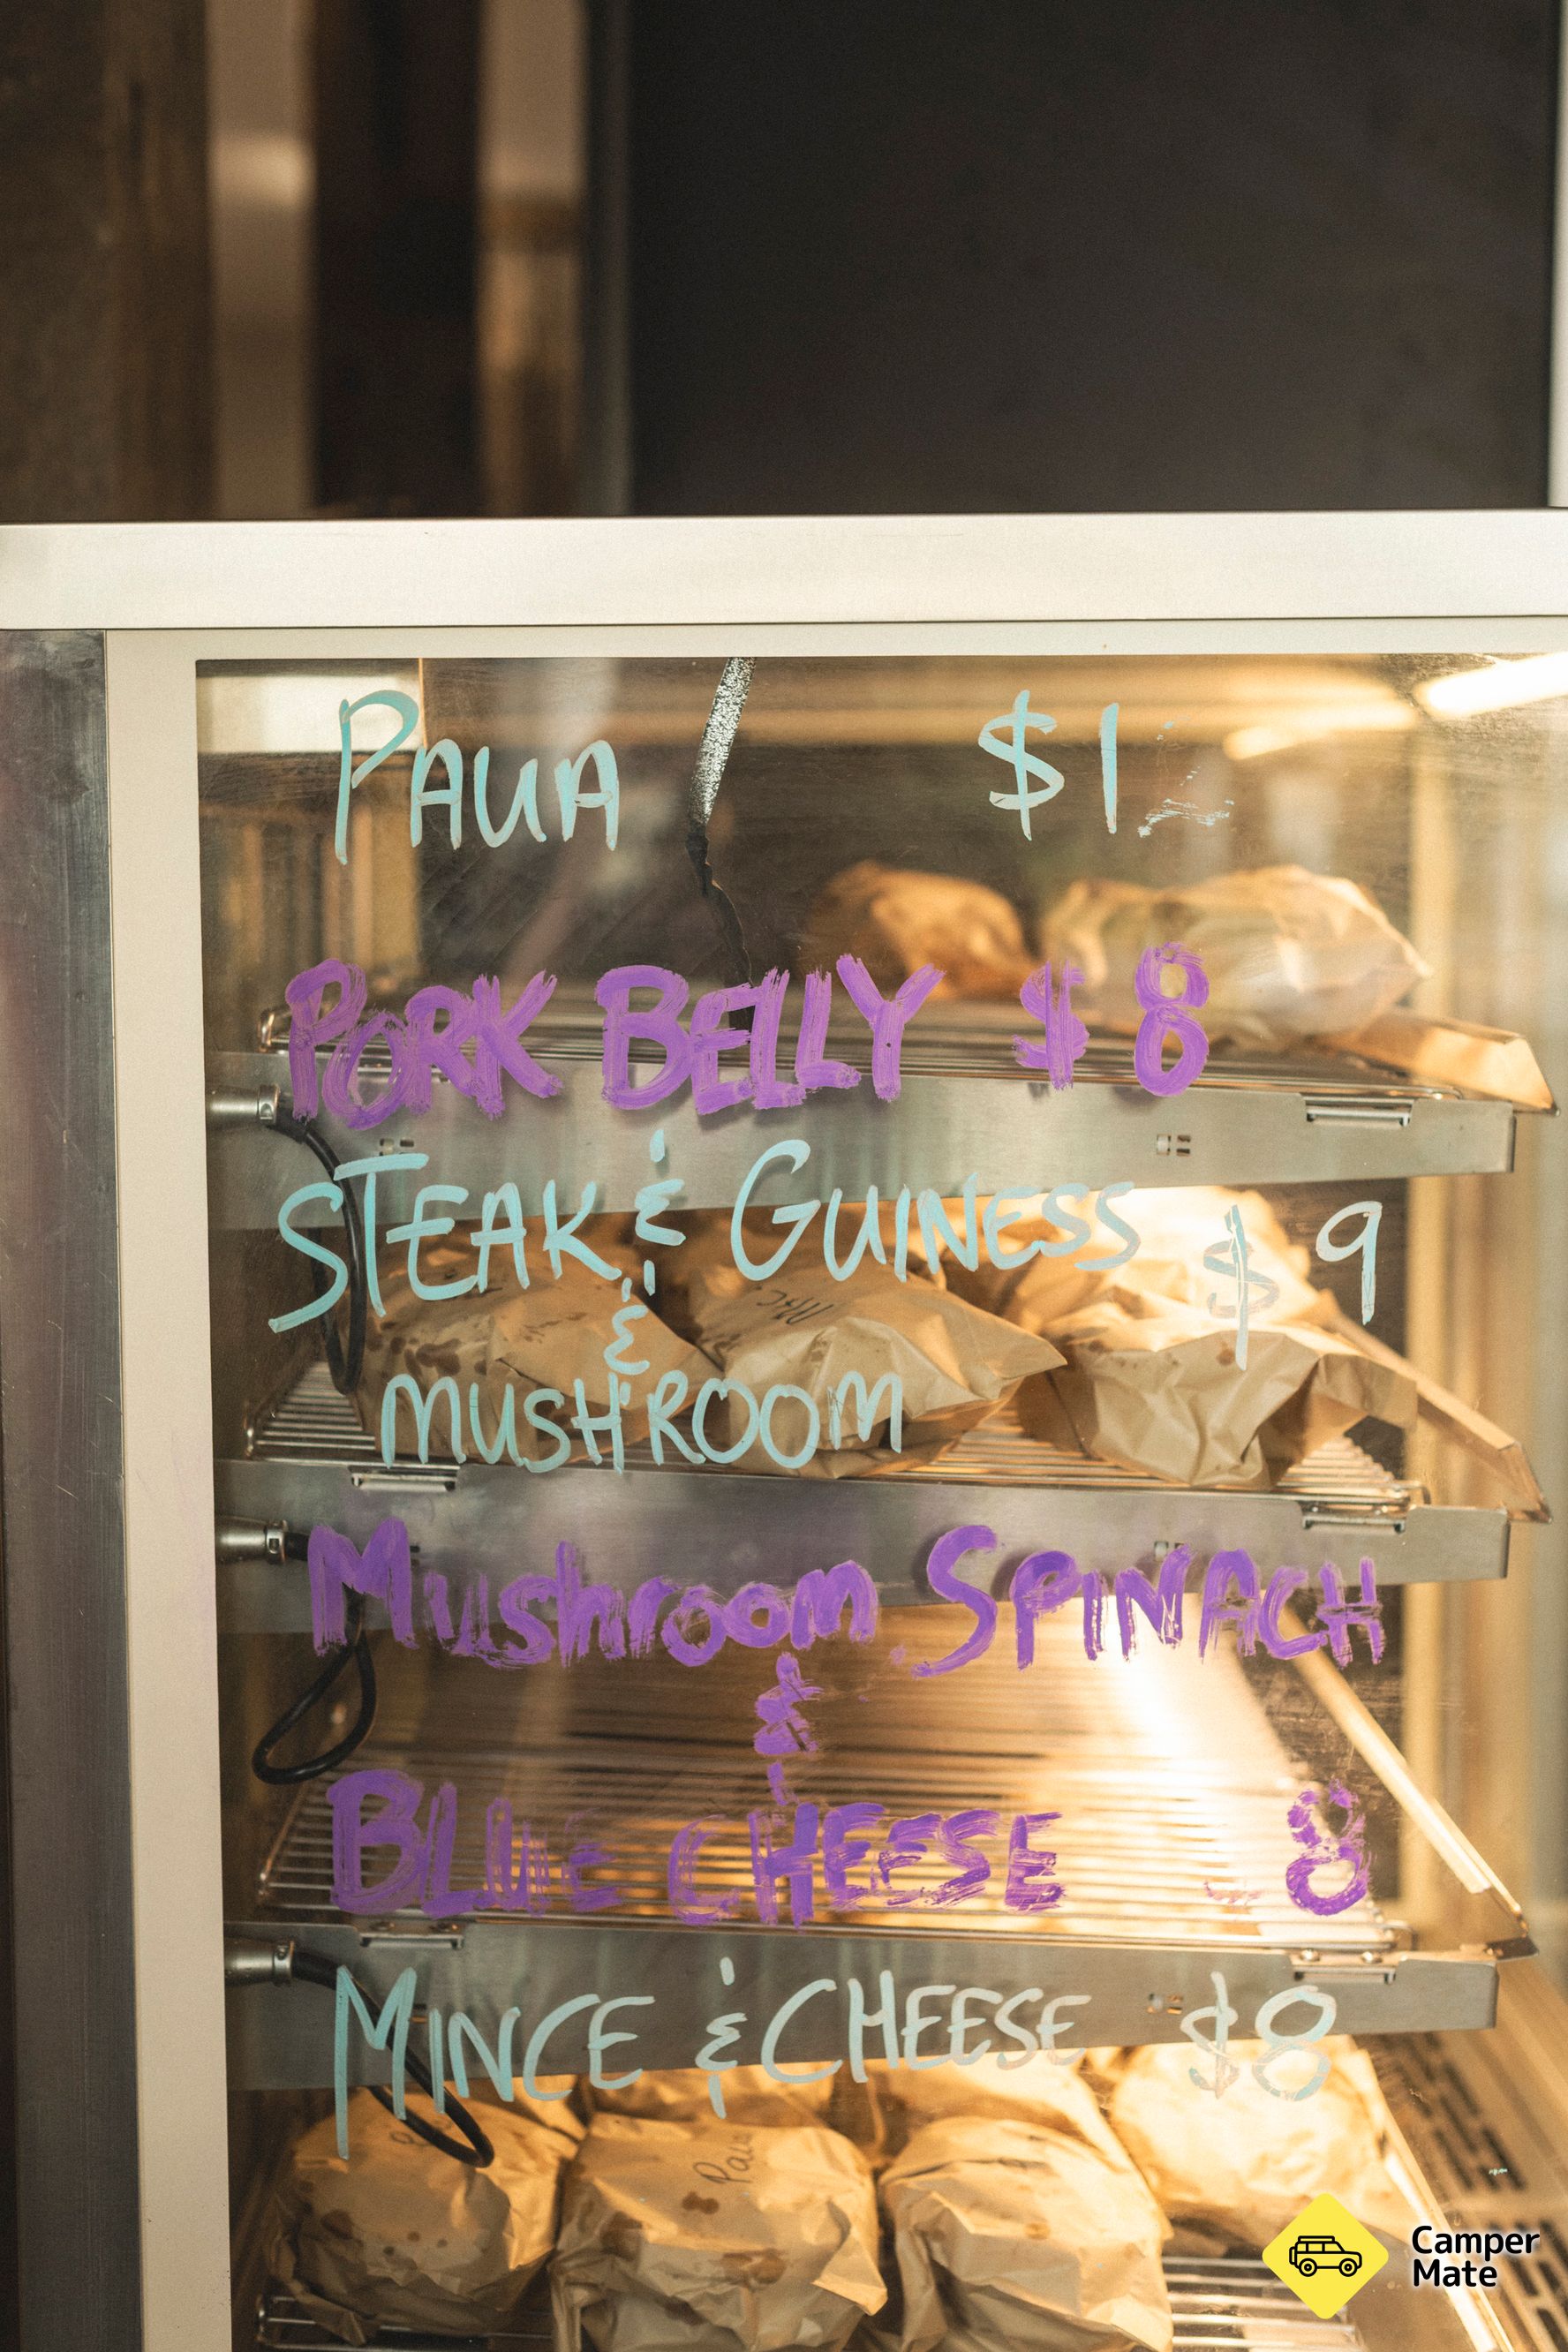 PAUA $1
PORK BELLY $8
STEAK & GUINESS $9
&
MUSHROOM
Mushroom SPINACH
&
BLUE CHEESE 8
MINCE & CHEESE $8
M+C
Paua
Camper
Mate